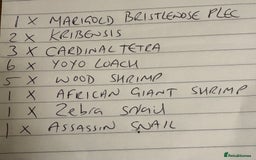 1 X MARIGOLD BRISTLENOSE PLEC
2 X KRIBENSIS
3 X CARDINAL TETRA
6 X YOYO LOACH
5 X WOOD SHRIMP
1 X AFRICAN GIANT SHRIMP
1 X Zebra snail
1 X ASSASSIN SNAIL